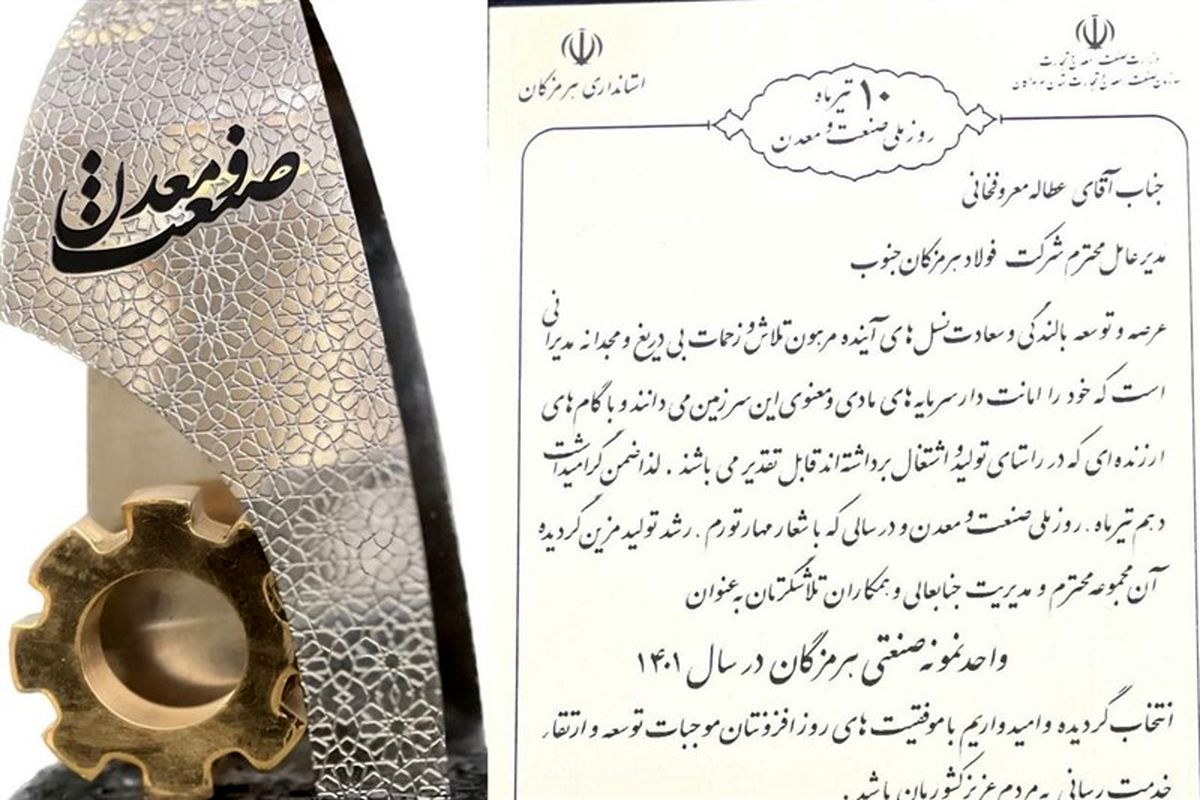 صنعت و معدن
استانداری هرمزگان
وزارت صنعت، معدن و تجارت
سازمان صنعت، معدن و تجارت استان هرمزگان
۱۰ تیرماه
روز ملی صنعت و معدن
جناب آقای عطااله معروفخانی
مدیر عامل محترم شرکت فولاد هرمزگان جنوب
عرصه و توسعه بالندگی و سعادت نسل های آینده مرهون تلاش و زحمات بی دریغ و مجدانه مدیرانی
است که خود را امانت دار سرمایه های مادی و معنوی این سرزمین می دانند و با گام های
ارزنده ای که در راستای تولید و اشتغال برداشته اند قابل تقدیر می باشند . لذا ضمن گرامیداشت
دهم تیرماه . روز ملی صنعت و معدن و در سالی که با شعار مهار تورم . رشد تولید مزین گردیده
آن مجموعه محترم و مدیریت جنابعالی و همکاران تلاشگرتان به عنوان
واحد نمونه صنعتی هرمزگان در سال ۱۴۰۱
انتخاب گردیده و امید واریم با موفقیت های روز افزونتان موجبات توسعه و ارتقاء
خدمت رسانی به مردم عزیز کشورمان باشد .